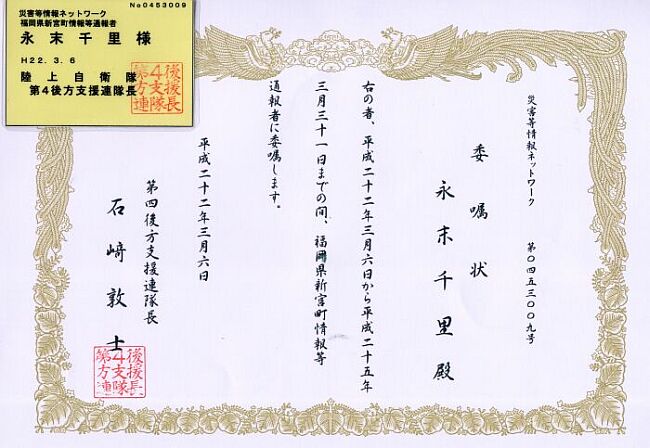 No0453009
災害等情報ネットワーク
福岡県新宮町情報等通報者
永末千里様
H22．3．6
陸上自衛隊
第4後方支援連隊長
後援長
4支隊
第方連
災害等情報ネットワーク　第〇四五三〇〇九号
委嘱状
永末千里殿
右の者、平成二十二年三月六日から平成二十五年
三月三十一日までの間、福岡県新宮町情報等
通報者に委嘱します。
平成二十二年三月六日
第四後方支援連隊長
石﨑敦士
後援長
4支隊
第方連